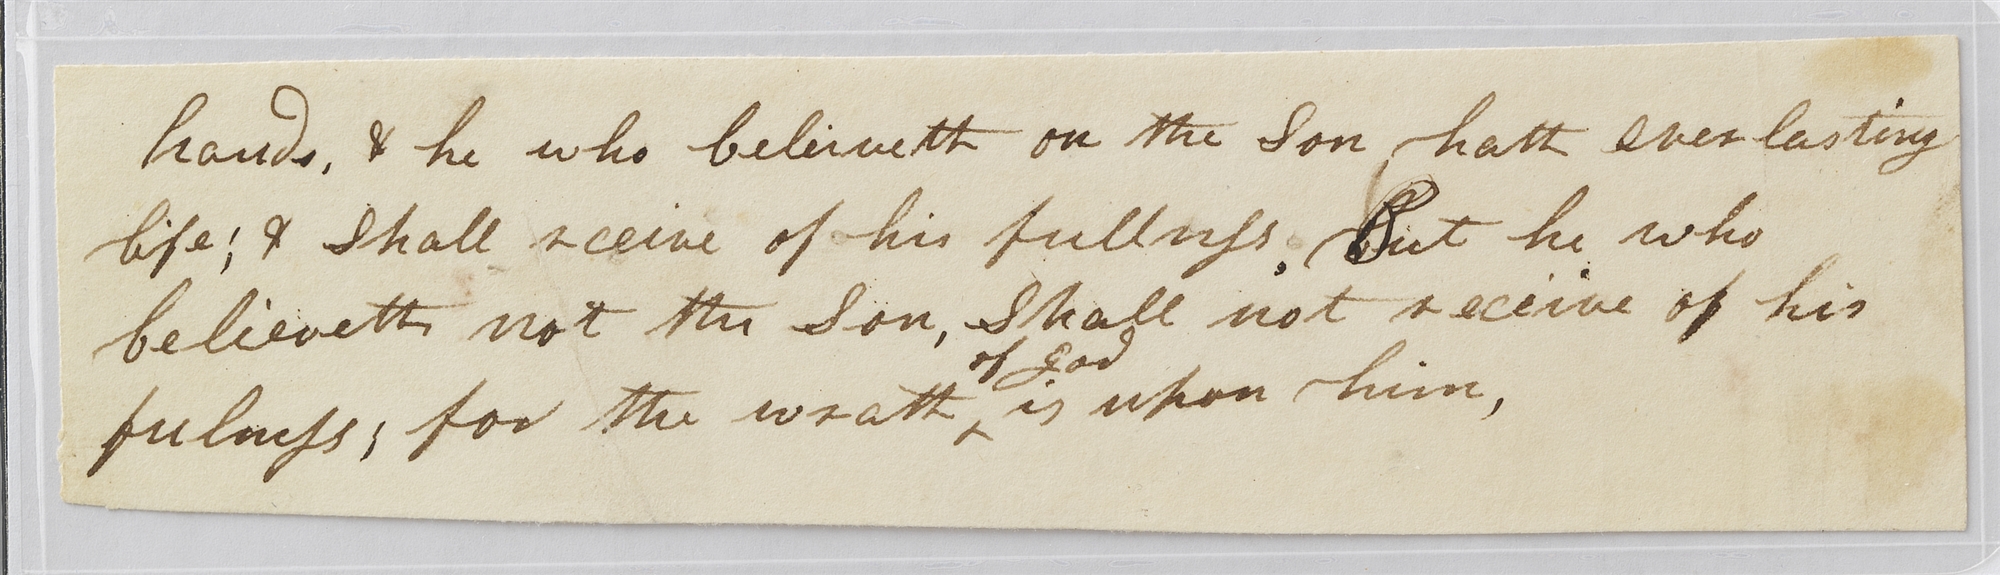 hands, & he who believeth on the Son, hath everlasting
life; & shall receive of his fullness. But he who
believeth not the Son, shall not receive of his
of God
fulness; for the wrath ‸ is upon him,